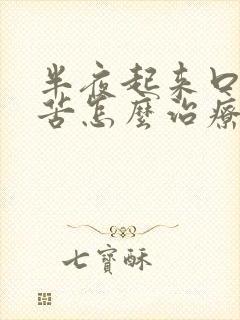 半夜起来口
苦怎麼治療
七寶酥